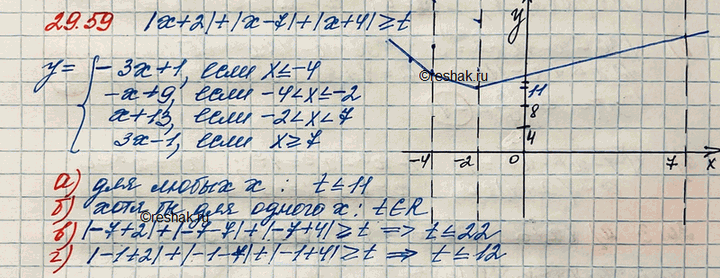 29.59 |x+2|+|x-7|+|x+4|≥t
y= { -3x+1, если x≤-4
-x+9, если -4<x≤-2
x+13, если -2<x<7
3x-1, если x≥7
y
©reshak.ru
11
8
4
-4 -2 0 7 x
а) для любых x: t≤11
б) хотя бы для одного x: t∈R
©reshak.ru
в) |-7+2|+|-7-7|+|-7+4|≥t => t≤22
г) |-1+2|+|-1-7|+|-1+4|≥t => t≤12